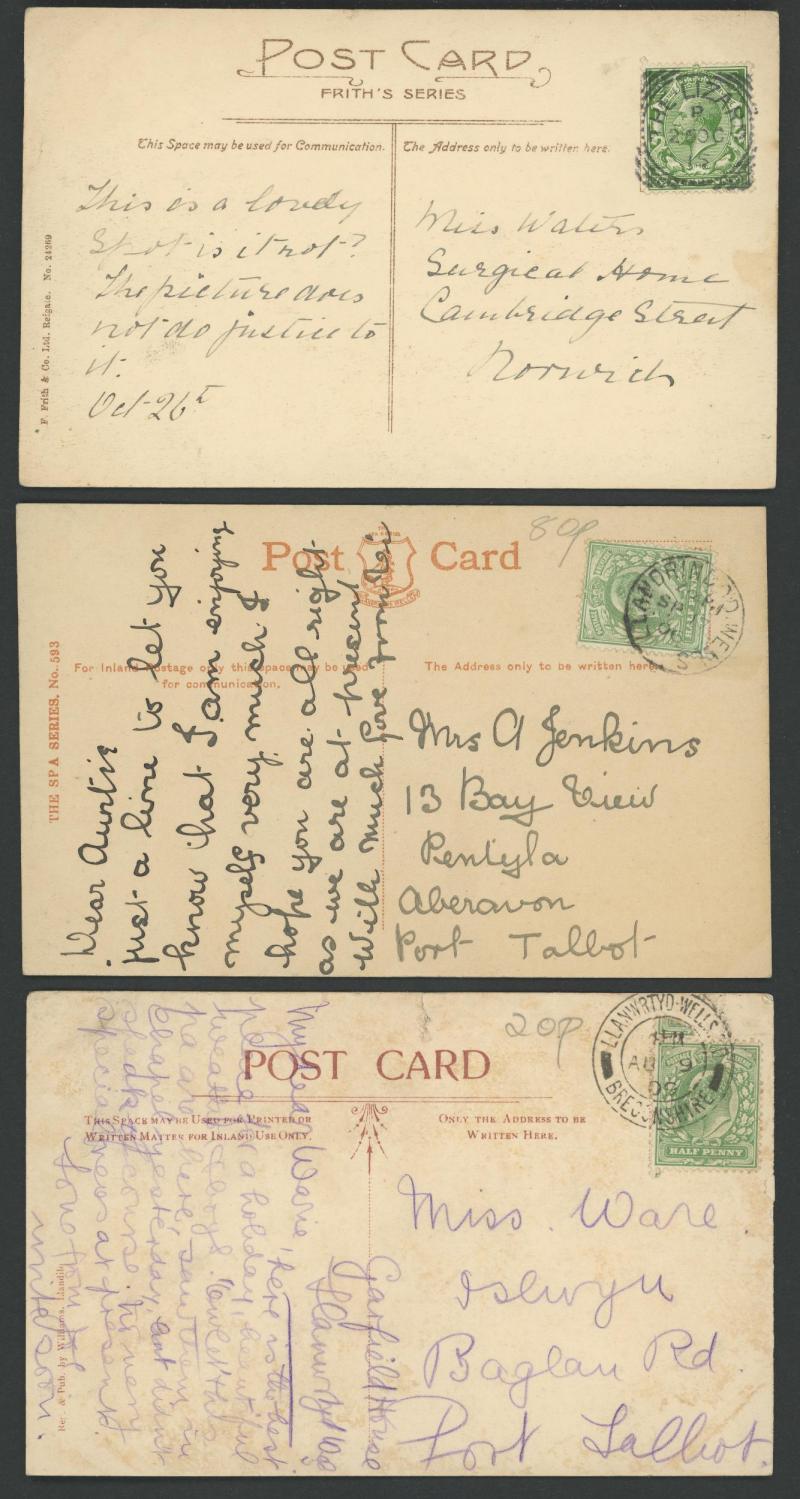 POST CARD
FRITH'S SERIES
This Space may be used for Communication.
The Address only to be written here.
THE LIZARD
F. Frith & Co. Ltd. Reigate. No. 24269
This is a lovely
Spot is it not?
The picture does
not do justice to
it.
Oct 26
Miss Waters
Surgical Home
Cambridge Street
Norwich
80p
Post Card
THE SPA SERIES. No. 593
For Inland Postage only this space may be used
for communication.
The Address only to be written here.
LLANDRINDOD-WELLS
Dear Auntie
just a line to let you
know that I am enjoying
myself very much I
hope you are all right
as we are at present
With much love from
Mrs A Jenkins
13 Bay View
Pentyla
Aberavon
Port Talbot
20p
POST CARD
THIS SPACE MAY BE USED FOR PRINTED OR
WRITTEN MATTER FOR INLAND USE ONLY.
ONLY THE ADDRESS TO BE
WRITTEN HERE.
LLANWRTYD-WELLS
AU 9
09
BRECONSHIRE
HALF PENNY
Reg. & Pub. by Williams, Llandilo
Garfield House
My dear
here is the best
place for a holiday, beautiful
weather
pa are here, saw them in
Chapel yesterday, but didn't
speak of course. No news
special news at present.
Love from
write soon.
Miss. Ware.
Islwyn
Baglan Rd.
Port Talbot.